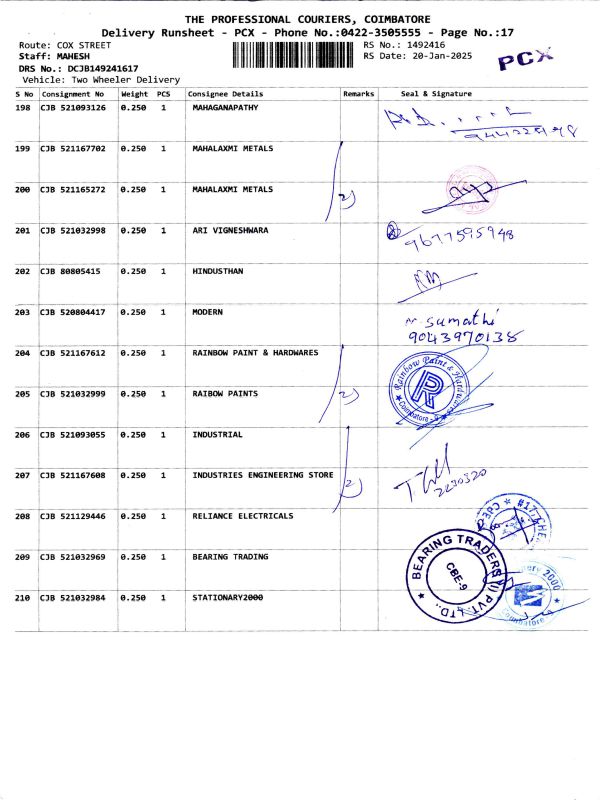 THE PROFESSIONAL COURIERS, COIMBATORE
Delivery Runsheet - PCX - Phone No.:0422-3505555 - Page No.:17
Route: COX STREET RS No.: 1492416
Staff: MAHESH RS Date: 20-Jan-2025
PCX
DRS No.: DCJB149241617
Vehicle: Two Wheeler Delivery
S No Consignment No Weight PCS Consignee Details Remarks Seal & Signature
198 CJB 521093126 0.250 1 MAHAGANAPATHY
199 CJB 521167702 0.250 1 MAHALAXMI METALS
200 CJB 521165272 0.250 1 MAHALAXMI METALS 2)
201 CJB 521032998 0.250 1 ARI VIGNESHWARA
9677595948
202 CJB 80805415 0.250 1 HINDUSTHAN
203 CJB 520804417 0.250 1 MODERN
M. Sumathi
9043970138
204 CJB 521167612 0.250 1 RAINBOW PAINT & HARDWARES
205 CJB 521032999 0.250 1 RAIBOW PAINTS 2)
Rainbow Paint & Hardwares
Coimbatore
206 CJB 521093055 0.250 1 INDUSTRIAL
207 CJB 521167608 0.250 1 INDUSTRIES ENGINEERING STORE 2)
2230320
208 CJB 521129446 0.250 1 RELIANCE ELECTRICALS
209 CJB 521032969 0.250 1 BEARING TRADING
BEARING TRADERS (I) PVT. LTD.,
CBE-9
210 CJB 521032984 0.250 1 STATIONARY2000
2000
Coimbatore